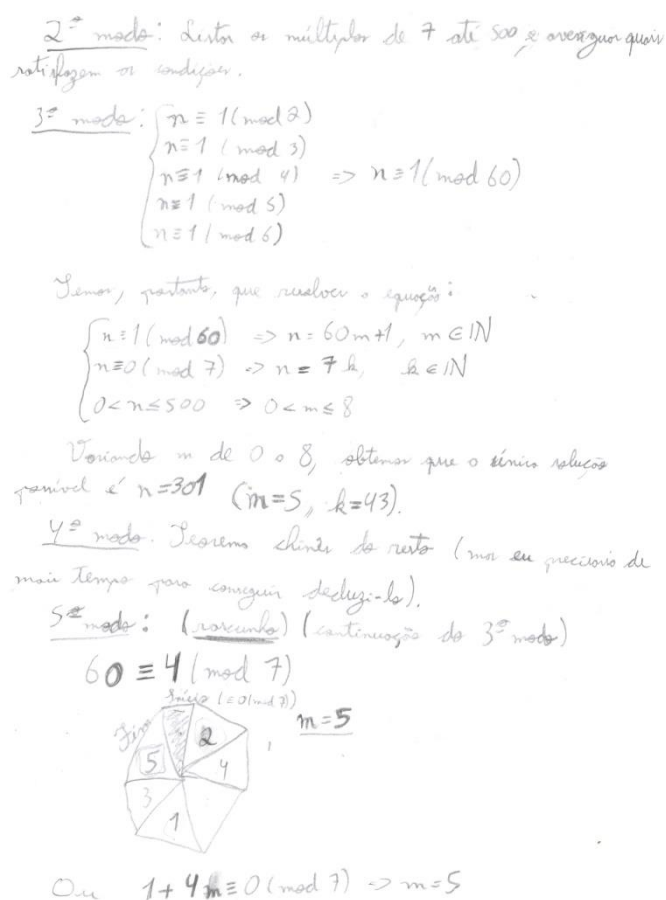 2º modo: Listar os múltiplos de 7 até 500 e averiguar quais
satisfazem as condições.
3º modo: n ≡ 1 (mod 2)
n ≡ 1 (mod 3)
n ≡ 1 (mod 4) => n ≡ 1 (mod 60)
n ≡ 1 (mod 5)
n ≡ 1 (mod 6)
Temos, portanto, que resolver a equação:
n ≡ 1 (mod 60) => n = 60m+1, m ∈ IN
n ≡ 0 (mod 7) => n = 7k, k ∈ IN
0 < n ≤ 500 => 0 < m ≤ 8
Variando m de 0 a 8, obtemos que a única solução
possível é n=301 (m=5, k=43).
4º modo. Teorema chinês do resto (mas eu precisaria de
mais tempo para conseguir deduzi-lo).
5º modo: (rascunho) (continuação do 3º modo)
60 ≡ 4 (mod 7)
Início (≡0(mod 7))
Fim
m=5
2
5
4
3
1
Ou 1+4m ≡ 0 (mod 7) => m=5